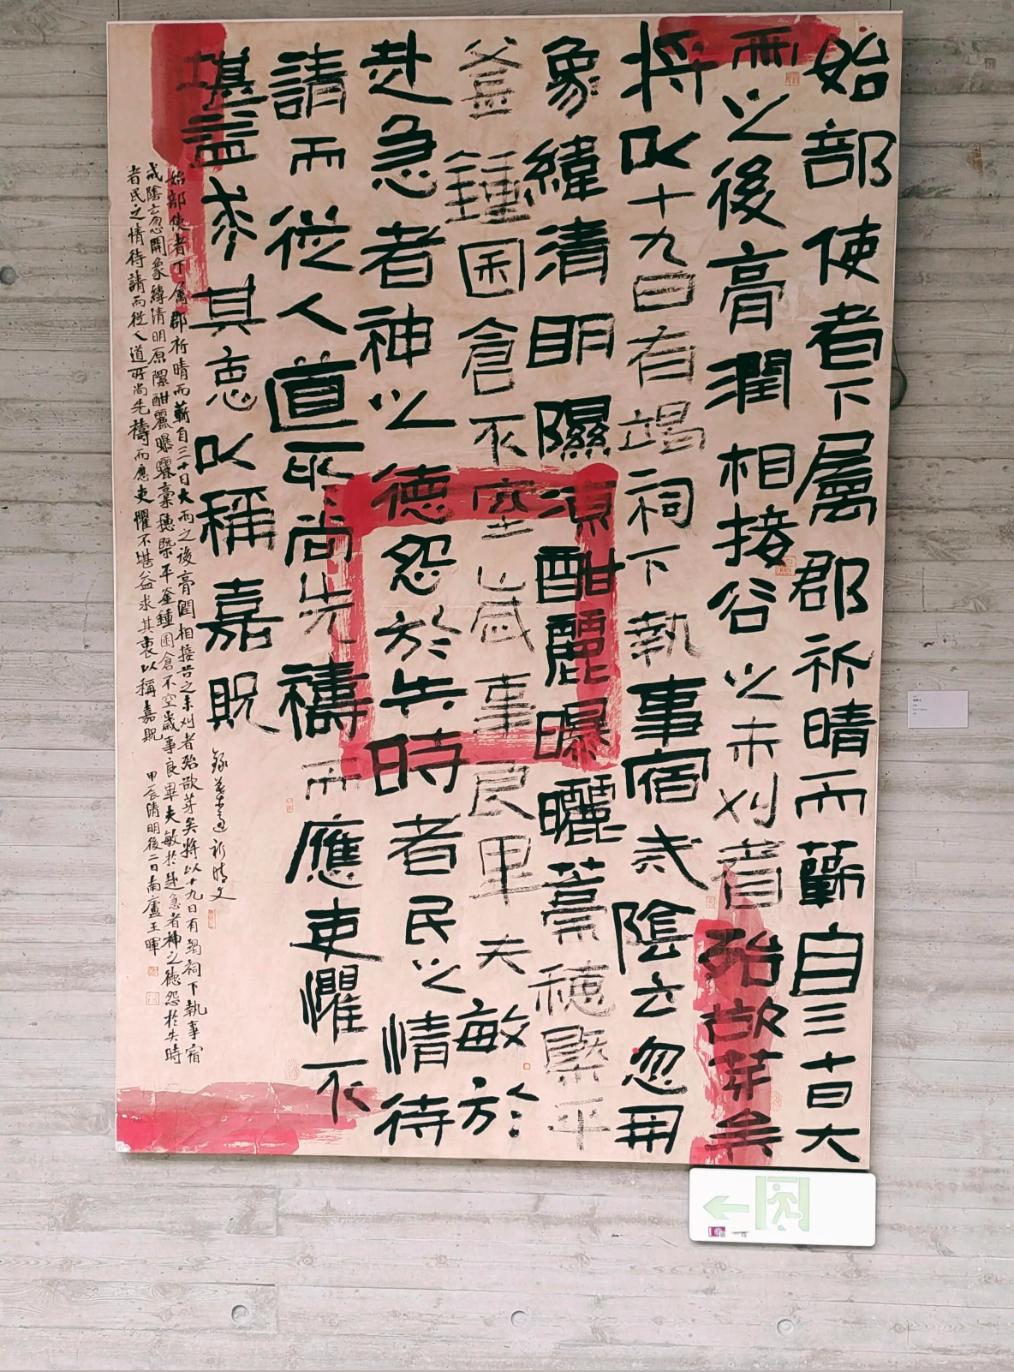 始部使者下属郡祈晴而蘄自三十日大
雨之後膏潤相接谷之未刈者殆欲芽矣
将以十九日有謁祠下執事宿戒陰云忽開
象緯清明隰原酣麗曝曬藁穗槩平
釜鍾囷倉不空歲事良畢夫敏於
赴急者神之德怨於失時者民之情待
請而從人道所尚先禱而應吏懼不
堪益求其衷以稱嘉貺
始部使者下属郡祈晴而蘄自三十日大雨之後膏潤相接谷之未刈者殆欲芽矣將以十九日有謁祠下執事宿
戒陰云忽開象緯清明原隰酣麗曝曬藁穗槩平釜鍾囷倉不空歲事良畢夫敏於赴急者神之德怨於失時
者民之情待請而從人道所尚先禱而應吏懼不堪益求其衷以稱嘉貺 甲辰清明後二日南廬王暉
祈晴文